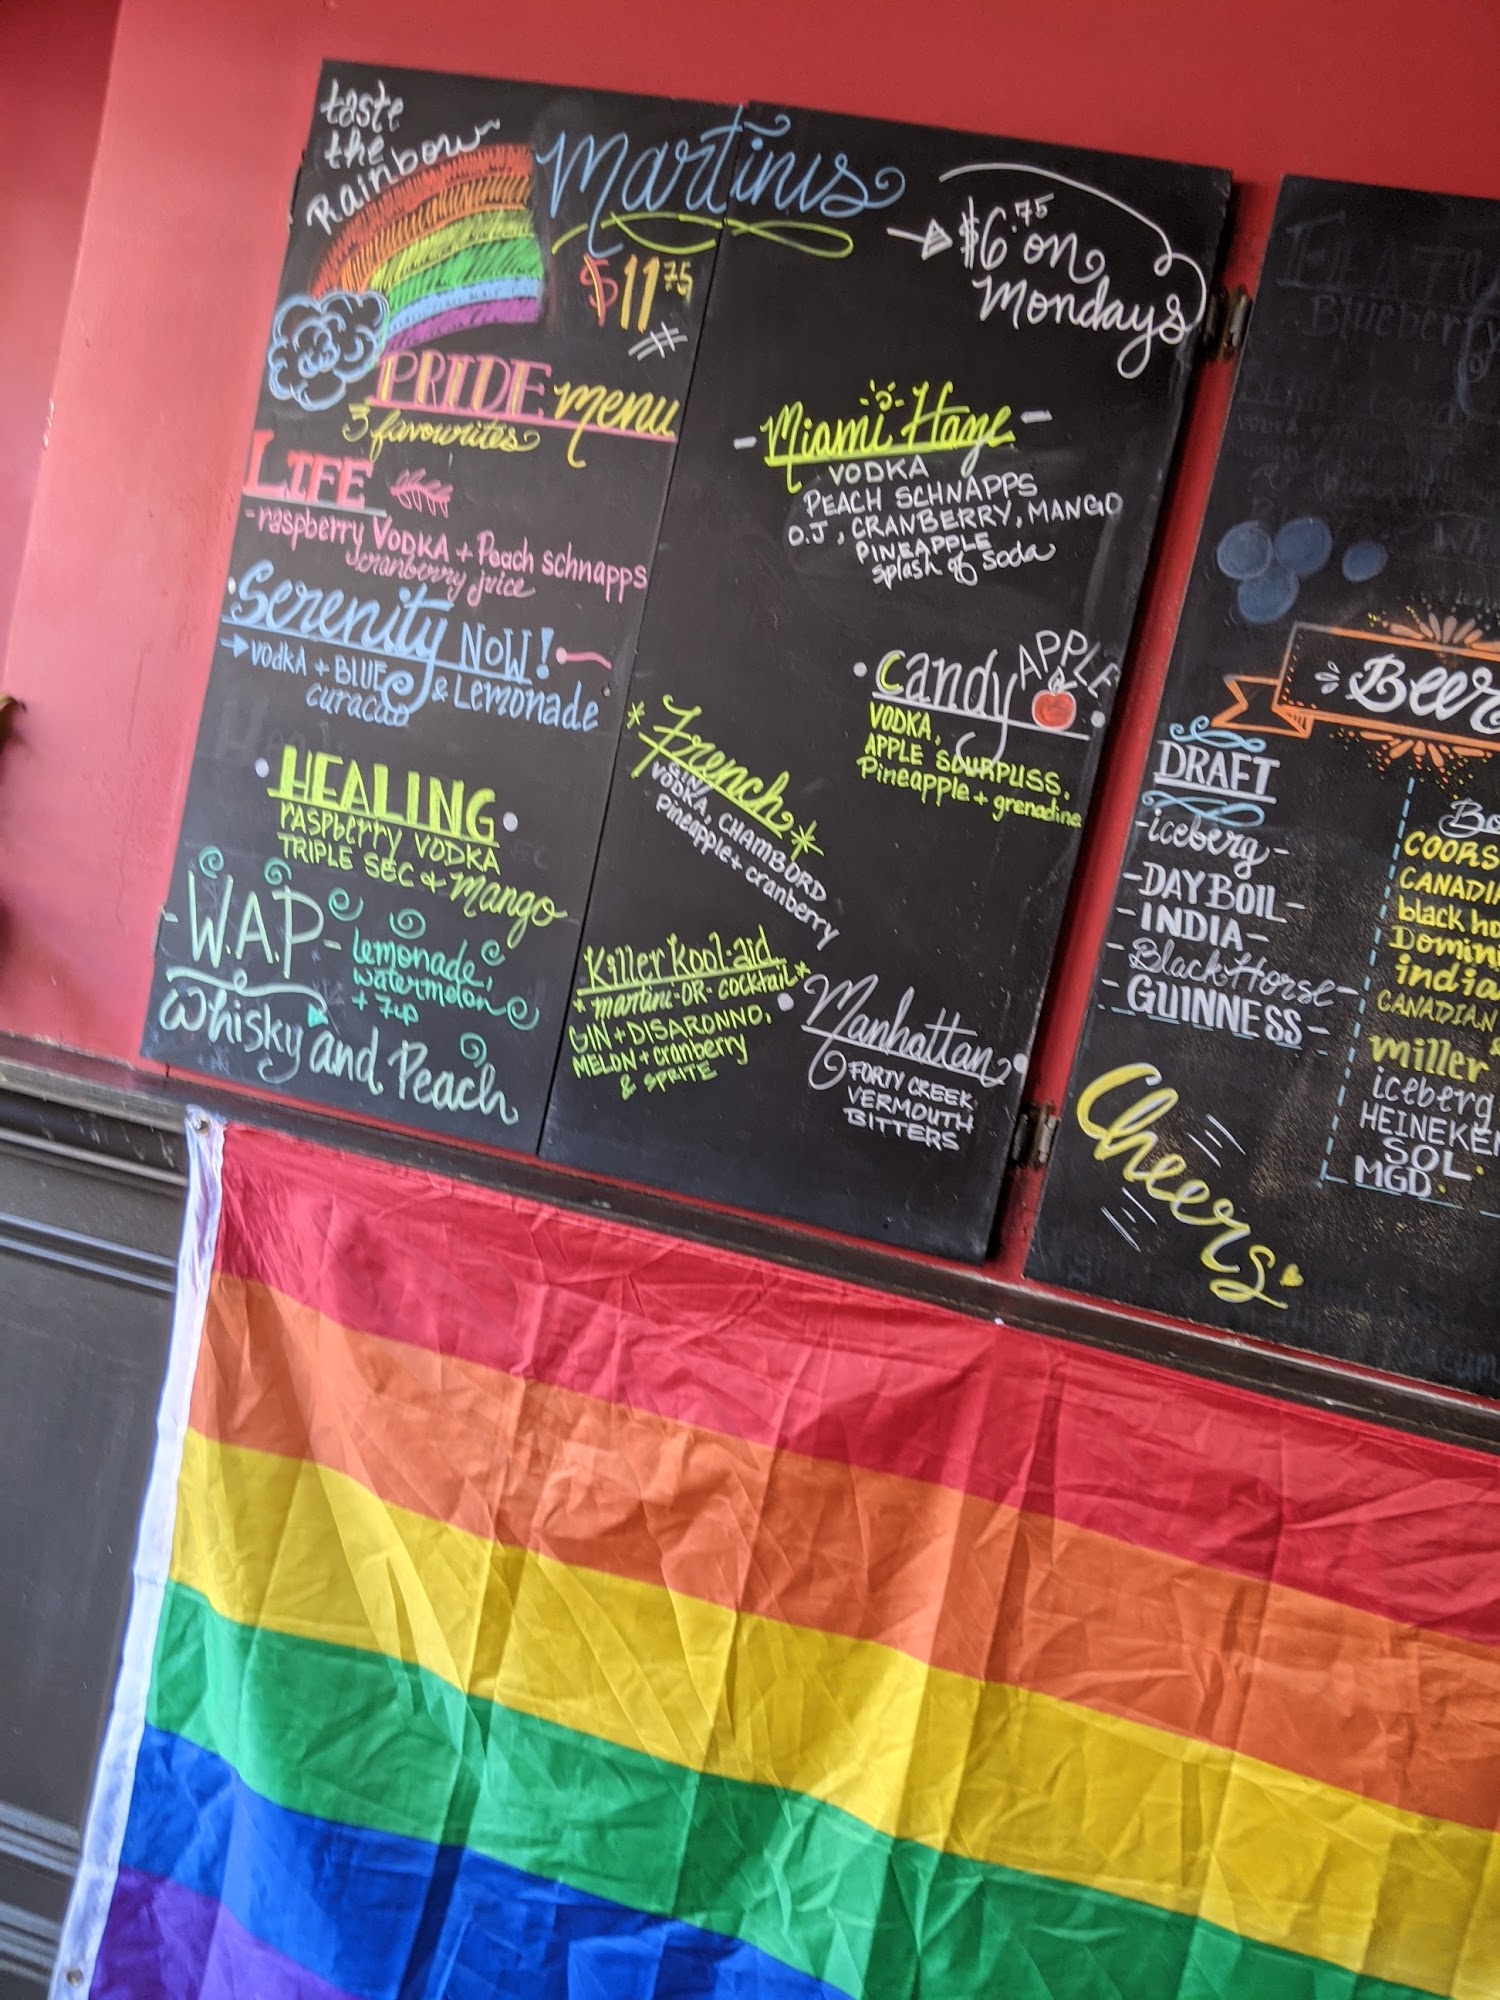 taste
the
Rainbow
Martinis
$11.75
$6.75 on
Mondays
PRIDE menu
3 favourites
LIFE
-raspberry VODKA + Peach schnapps
cranberry juice
Serenity NOW!
vodka + BLUE & Lemonade
curacao
HEALING
RASPBERRY VODKA
TRIPLE SEC & Mango
-W.A.P- lemonade,
watermelon
+ 7up
Whisky and Peach
- Miami Haze -
VODKA
PEACH SCHNAPPS
O.J, CRANBERRY, MANGO
PINEAPPLE
splash of soda
Candy APPLE
VODKA,
APPLE SOURPUSS,
Pineapple + grenadine
*French*
GIN/
VODKA, CHAMBORD
pineapple + cranberry
Killer Kool-aid
*martini-OR-cocktail*
GIN + DISARONNO,
MELON + cranberry
& SPRITE
Manhattan
FORTY CREEK,
VERMOUTH
BITTERS
Blueberry
Beer
DRAFT
-iceberg-
-DAY BOIL-
-INDIA-
-Black Horse-
-GUINNESS-
Cheers
Bo
COORS
CANADIA
black ho
Domin
india
CANADIAN
miller
iceberg
HEINEKEN
SOL
MGD